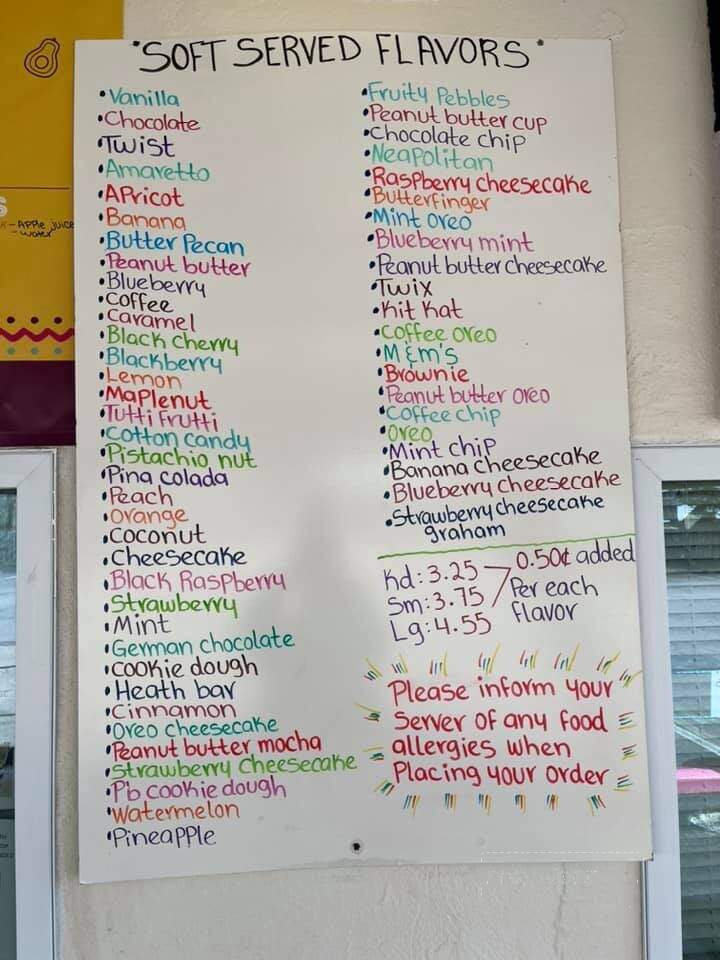 SOFT SERVED FLAVORS
• Vanilla
• Chocolate
• Twist
• Amaretto
• Apricot
• Banana
• Butter Pecan
• Peanut butter
• Blueberry
• Coffee
• Caramel
• Black cherry
• Blackberry
• Lemon
• Maplenut
• Tutti Frutti
• Cotton candy
• Pistachio nut
• Pina colada
• Peach
• Orange
• Coconut
• Cheesecake
• Black Raspberry
• Strawberry
• Mint
• German chocolate
• Cookie dough
• Heath bar
• Cinnamon
• Oreo cheesecake
• Peanut butter mocha
• Strawberry Cheesecake
• Pb cookie dough
• Watermelon
• Pineapple
• Fruity Pebbles
• Peanut butter cup
• Chocolate chip
• Neapolitan
• Raspberry cheesecake
• Butterfinger
• Mint Oreo
• Blueberry mint
• Peanut butter cheesecake
• Twix
• Kit Kat
• Coffee Oreo
• M&m's
• Brownie
• Peanut butter Oreo
• Coffee chip
• Oreo
• Mint chip
• Banana cheesecake
• Blueberry cheesecake
• Strawberry cheesecake
graham
Kd: 3.25
Sm: 3.75
Lg: 4.55
0.50¢ added
Per each
flavor
Please inform your
Server of any food
allergies when
Placing your order
- Apple juice
- water